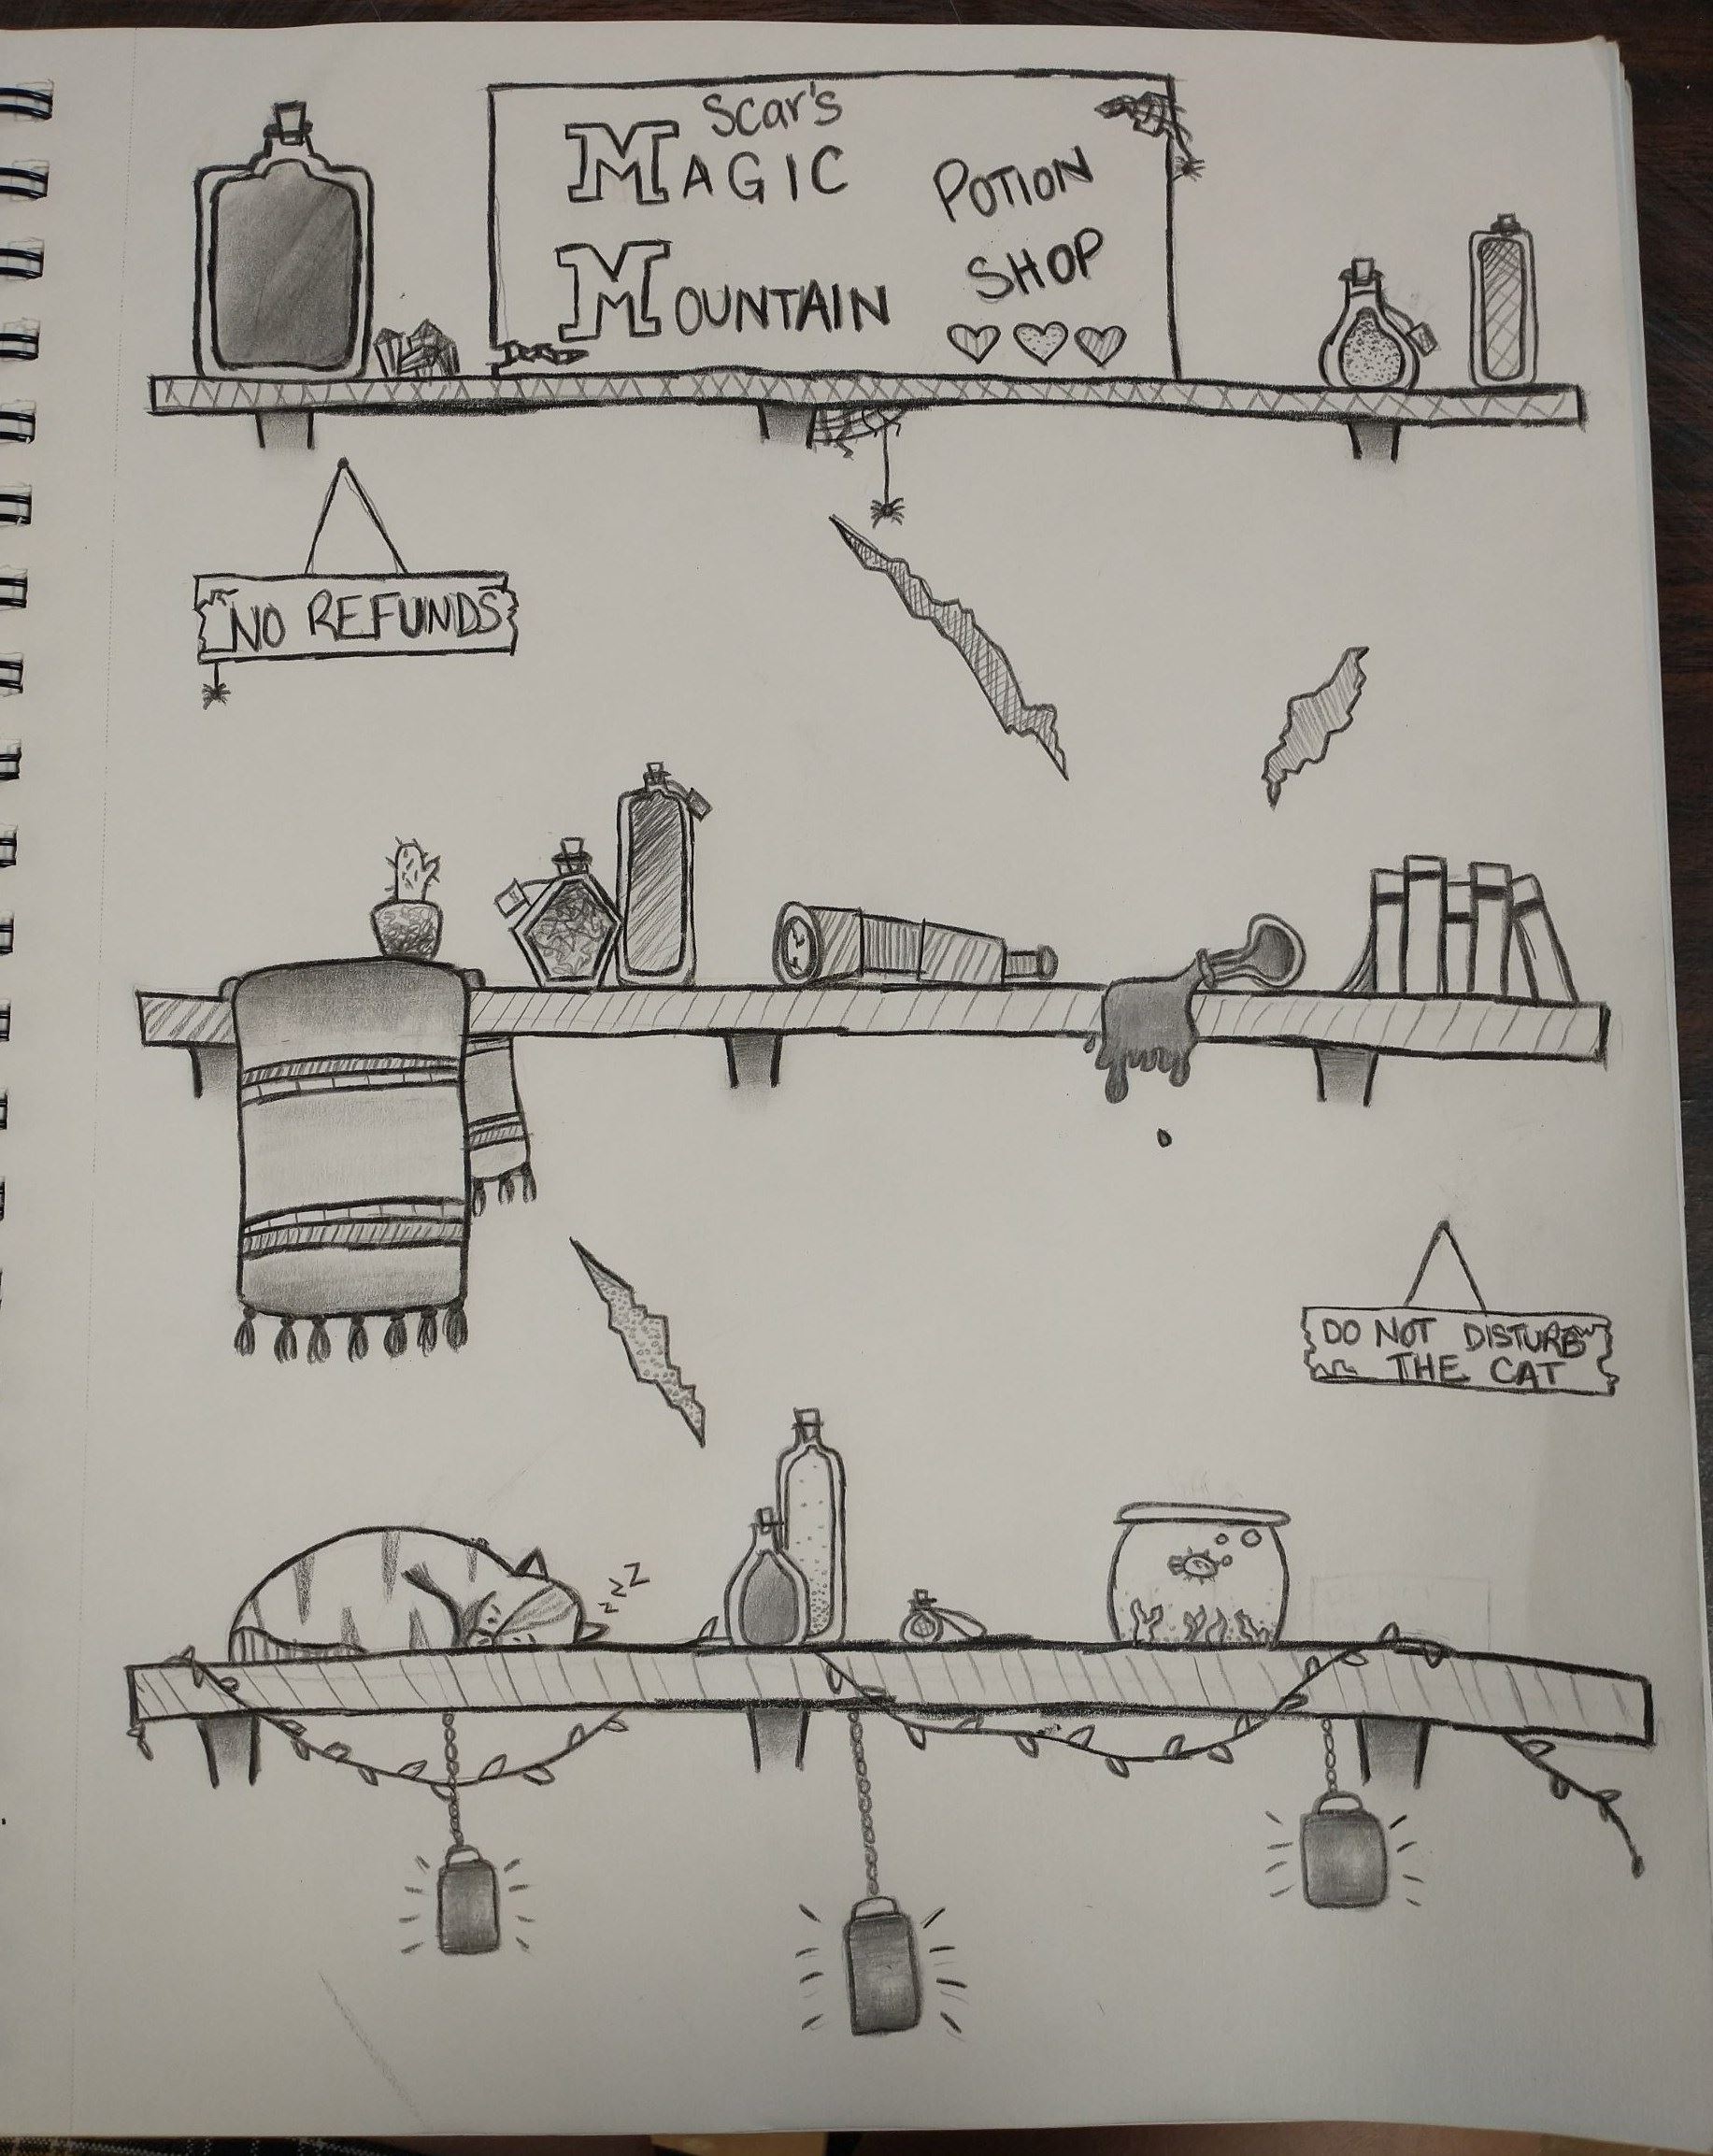 Scar's
MAGIC
MOUNTAIN
POTION
SHOP
NO REFUNDS
DO NOT DISTURB
THE CAT
zzZ